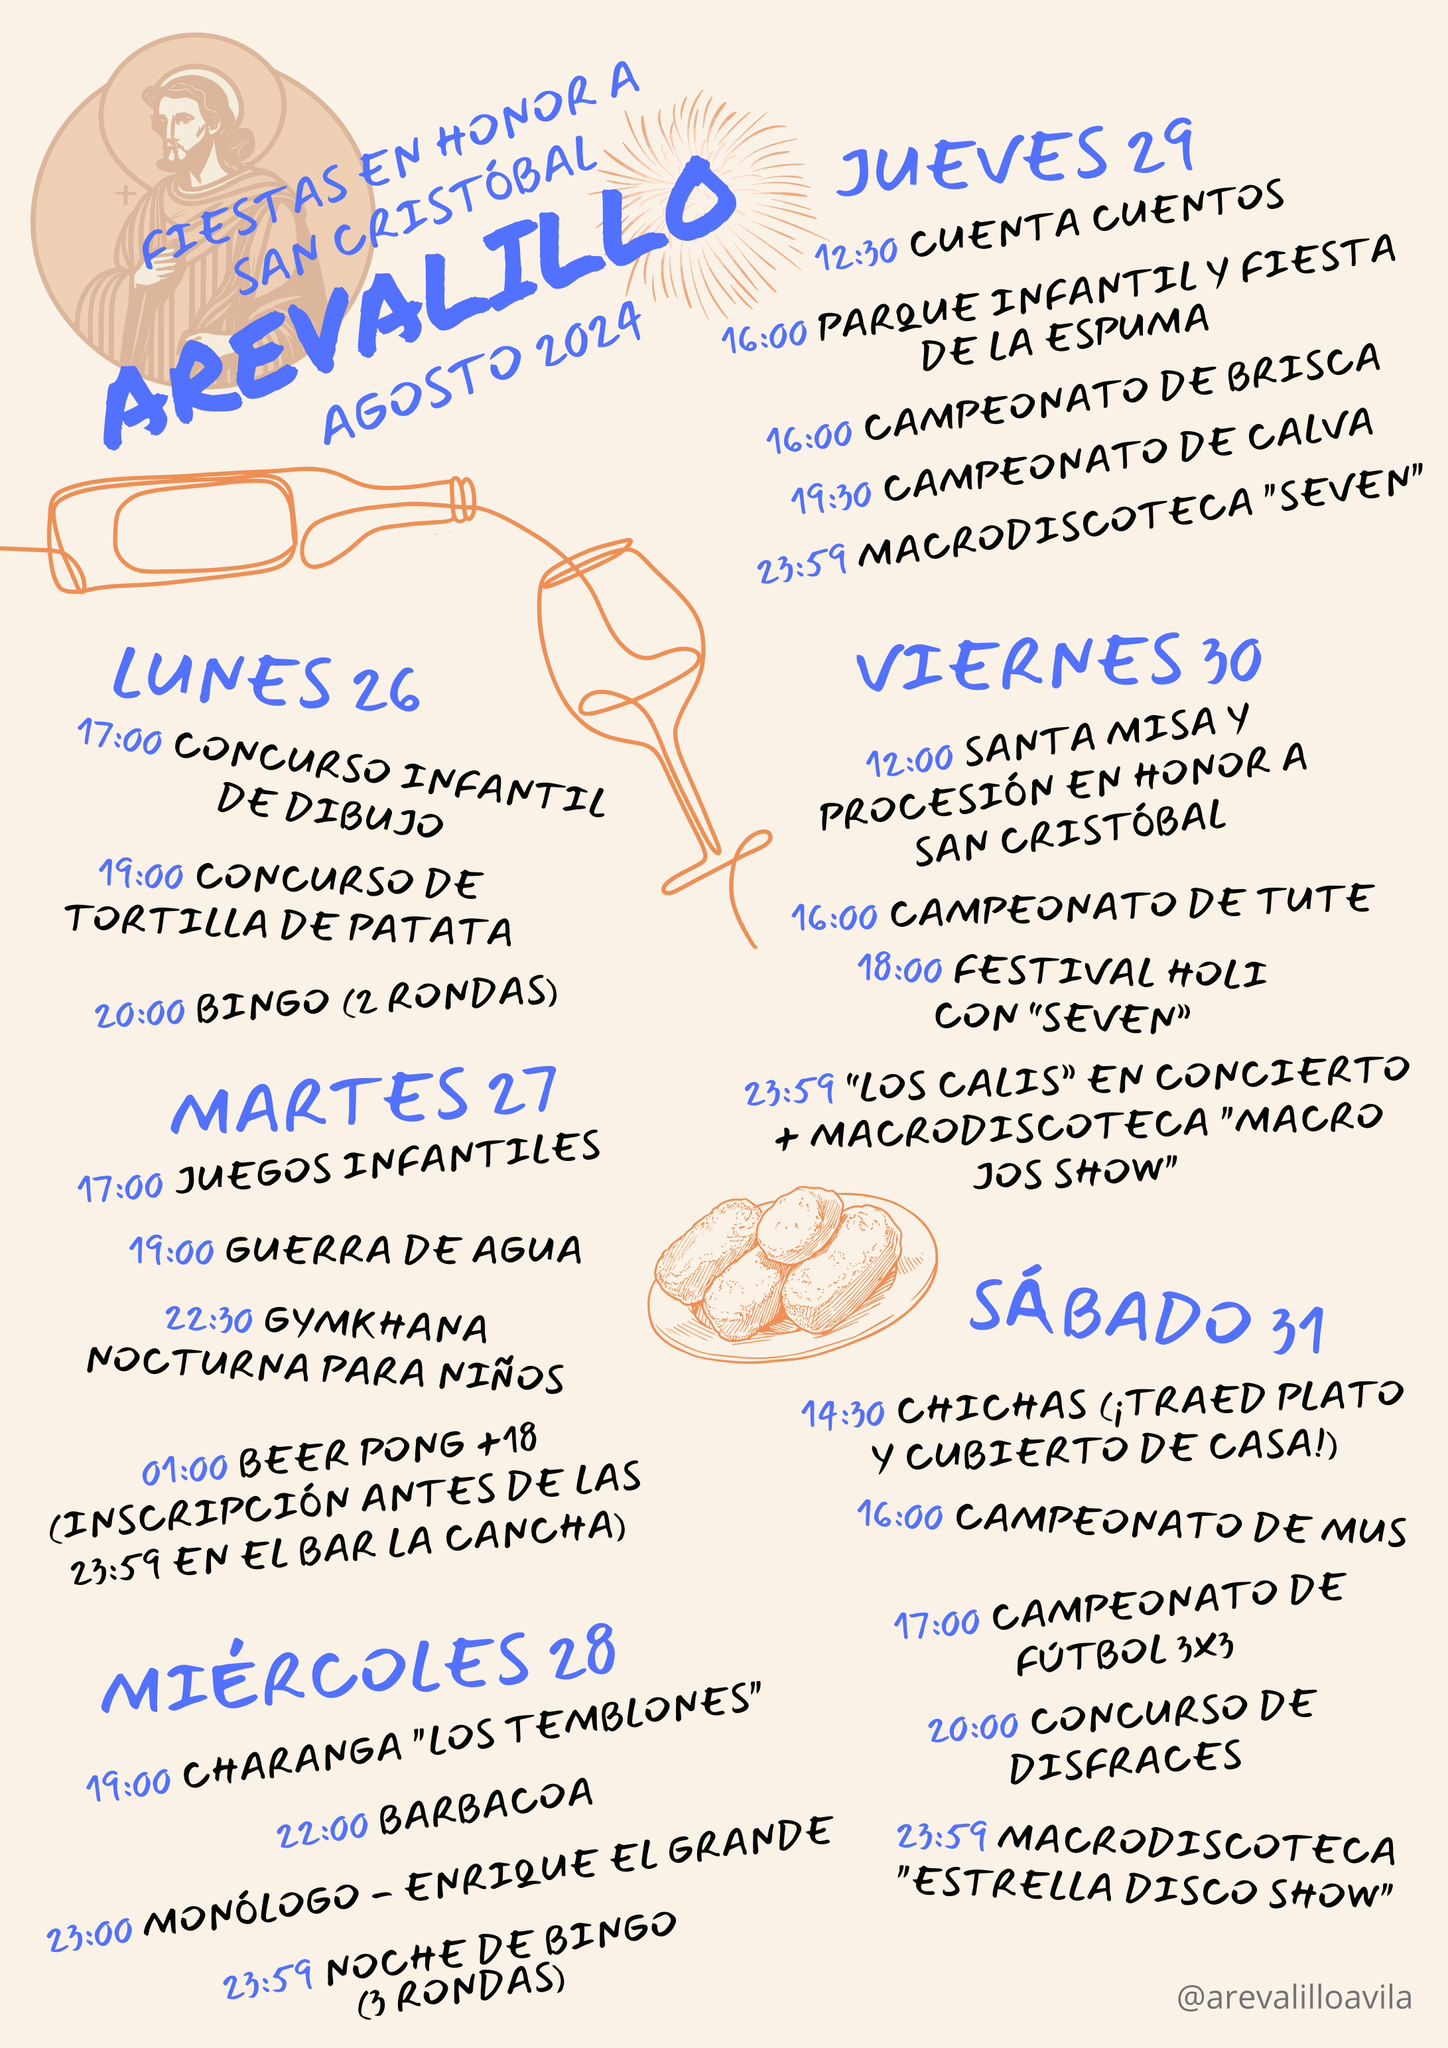 FIESTAS EN HONOR A
SAN CRISTÓBAL
AREVALILLO
AGOSTO 2024
LUNES 26
17:00 CONCURSO INFANTIL
DE DIBUJO
19:00 CONCURSO DE
TORTILLA DE PATATA
20:00 BINGO (2 RONDAS)
MARTES 27
17:00 JUEGOS INFANTILES
19:00 GUERRA DE AGUA
22:30 GYMKHANA
NOCTURNA PARA NIÑOS
01:00 BEER PONG +18
(INSCRIPCIÓN ANTES DE LAS
23:59 EN EL BAR LA CANCHA)
MIÉRCOLES 28
19:00 CHARANGA "LOS TEMBLONES"
22:00 BARBACOA
23:00 MONÓLOGO - ENRIQUE EL GRANDE
23:59 NOCHE DE BINGO
(3 RONDAS)
JUEVES 29
12:30 CUENTA CUENTOS
16:00 PARQUE INFANTIL Y FIESTA
DE LA ESPUMA
16:00 CAMPEONATO DE BRISCA
19:30 CAMPEONATO DE CALVA
23:59 MACRODISCOTECA "SEVEN"
VIERNES 30
12:00 SANTA MISA Y
PROCESIÓN EN HONOR A
SAN CRISTÓBAL
16:00 CAMPEONATO DE TUTE
18:00 FESTIVAL HOLI
CON "SEVEN"
23:59 "LOS CALIS" EN CONCIERTO
+ MACRODISCOTECA "MACRO
JOS SHOW"
SÁBADO 31
14:30 CHICHAS (¡TRAED PLATO
Y CUBIERTO DE CASA!)
16:00 CAMPEONATO DE MUS
17:00 CAMPEONATO DE
FÚTBOL 3X3
20:00 CONCURSO DE
DISFRACES
23:59 MACRODISCOTECA
"ESTRELLA DISCO SHOW"
@arevalilloavila